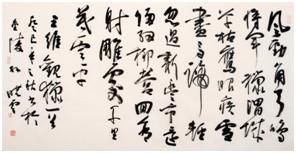 風勁角弓鳴
將軍獵渭城
草枯鷹眼疾雪
盡馬蹄輕
忽過新豐市還
歸細柳營回看
射雕處千里
暮雲平
王維觀獵一首
之秋於
曉雲